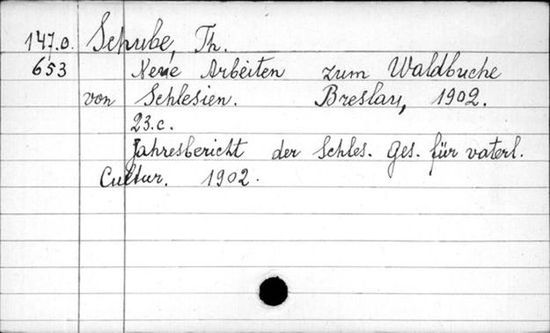 147.0. Schube, Th.
653 Neue Arbeiten zum Waldbuche
von Schlesien. Breslau, 1902.
23.c.
Jahresbericht der Schles. Ges. für vaterl.
Cultur. 1902.